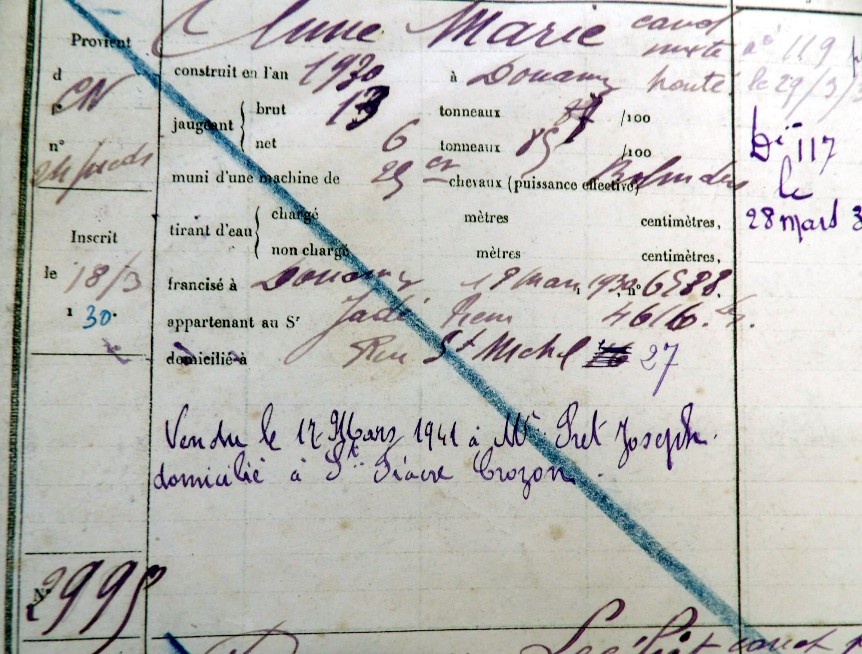 Provient
d
CN
n°
Inscrit
le 18/3
1 30.
N° 2995
Anne Marie canot
mixte n° 119
construit en l'an 1930 à Douarnz ponté le 29/3/3
jaugeant brut 13 tonneaux 87 /100
net 6 tonneaux 85 /100
muni d'une machine de 25 cv chevaux (puissance effective) Bolinders
tirant d'eau chargé mètres centimètres,
non chargé mètres centimètres,
francisé à Douarnz 18 mars 1930, n° 6588.
appartenant au Sr 4616.
domicilié à Rue St Michel 27
Vendu le 12 Mars 1941 à Mr Pret Joseph.
domicilié à St Fiacre Crozon.
117
le
28 mars 3
canot